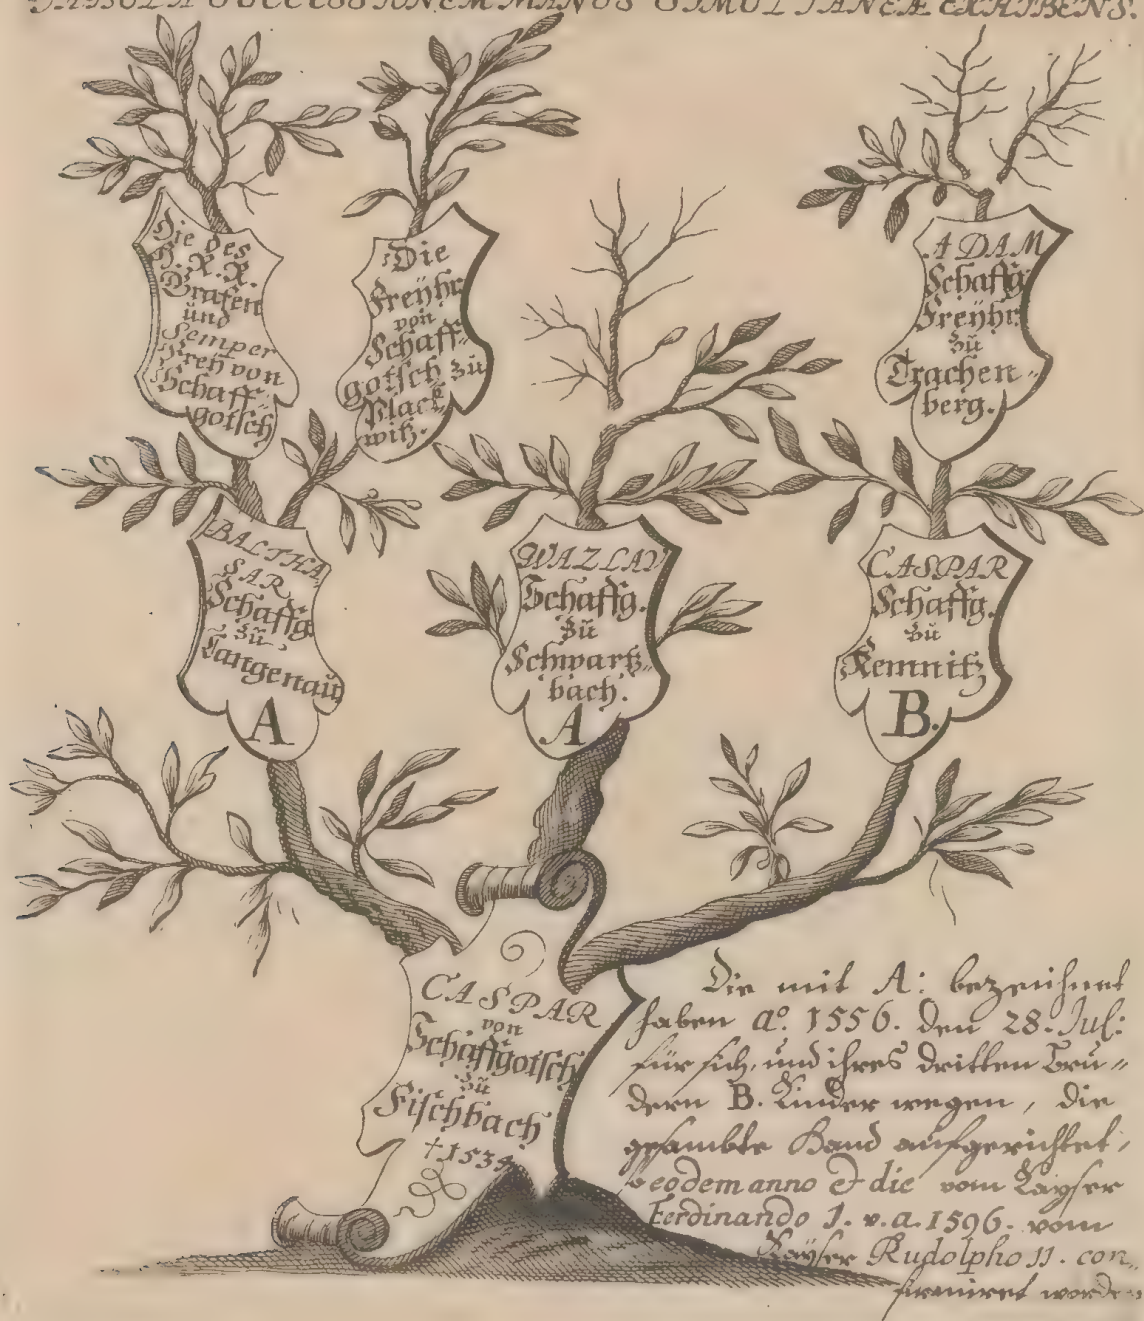 TABULA SUCCESSIONEM MANUS SIMULTANEÆ EXHIBENS.
Die des
H. R. R.
Grafen
und
Semper
Freÿ von
Schaff-
gotsch
Die
Freÿhr.
von
Schaff-
gotsch zů
Plack-
witz.
ADAM
Schaffg.
Freÿhr.
zů
Trachen-
berg.
BALTHA
SAR
Schaffg.
zů
Langenaů
A
WAZLAV
Schaffg.
zů
Schwartz-
bach.
A
CASPAR
Schaffg.
zů
Kemnitz
B.
CASPAR
von
Schaffgotsch
zů
Fischbach
†.1534
Die mit A: bezeichnet
haben aº. 1556. den 28. Jul:
für sich, und ihres dritten Bru-
dern B. Kinder wegen, die
gesambte Hand aufgerichtet,
so eodem anno & die vom Kayser
Ferdinando I. v. a. 1596. vom
Kayser Rudolpho II. con-
firmiret worden